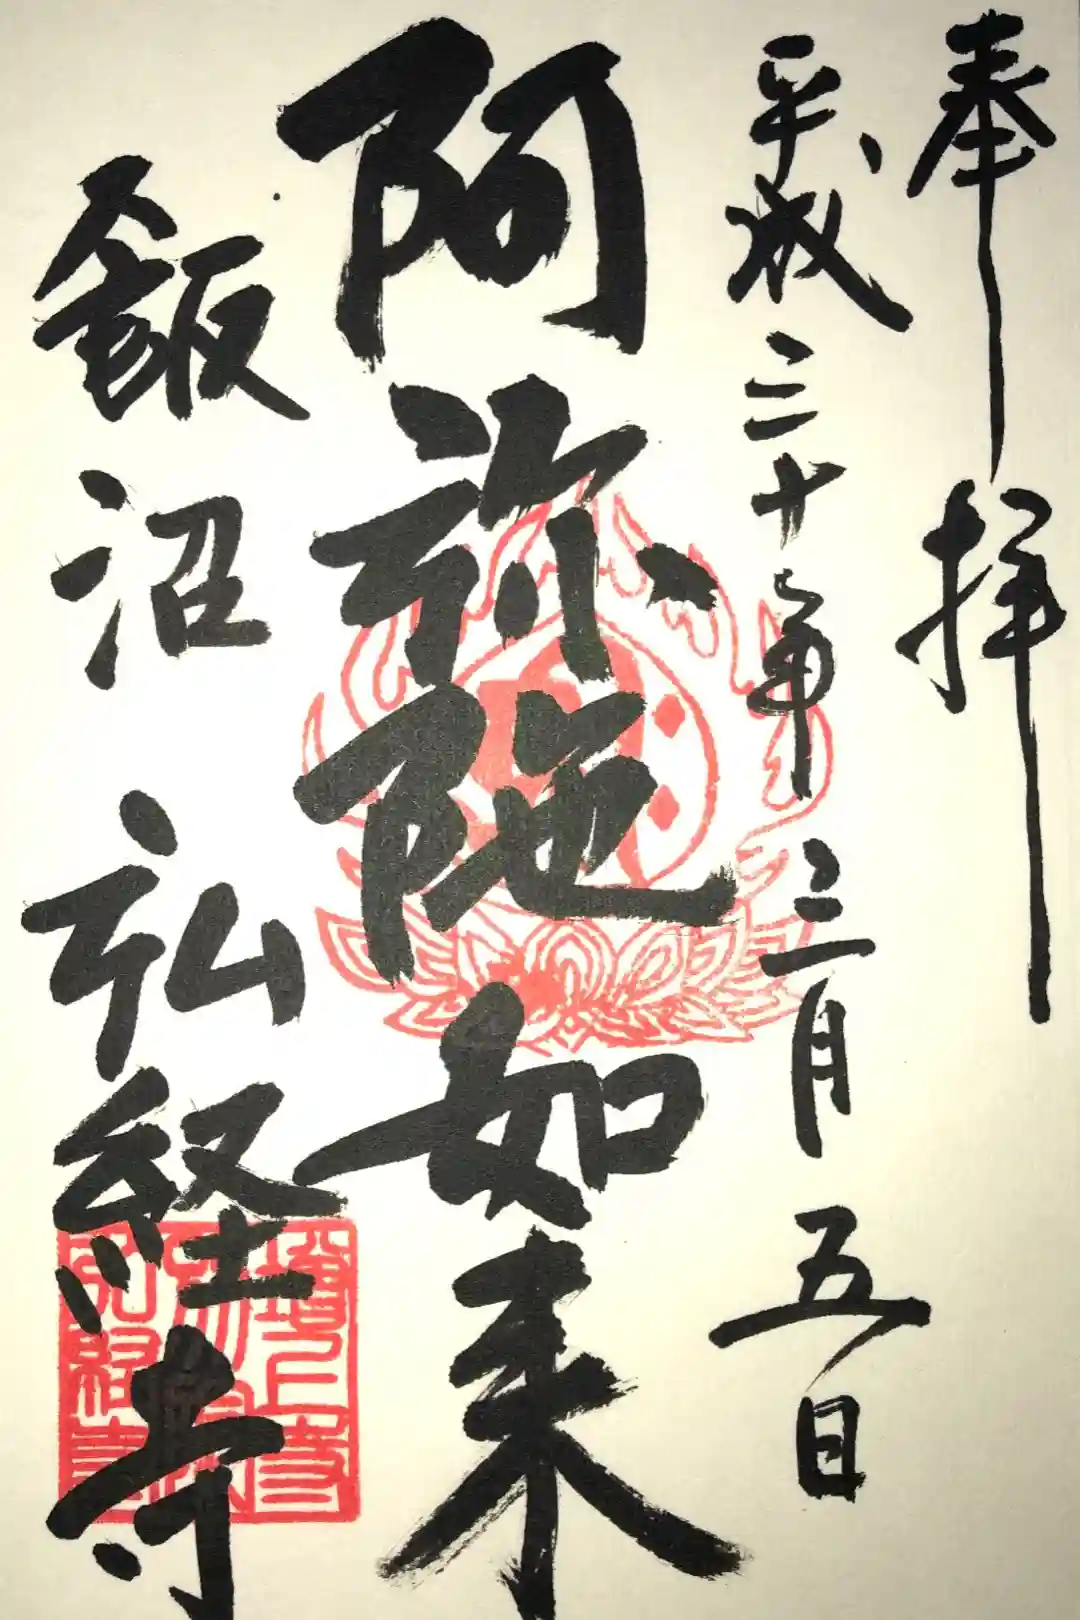 奉拝
平成三十年三月五日
阿弥陀如来
飯沼 弘経寺